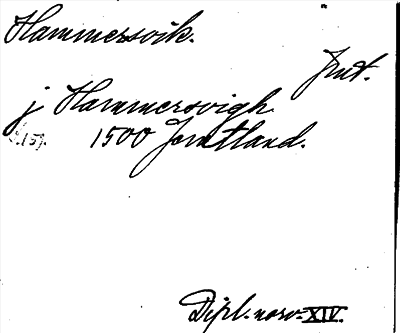 Hammersvik.
Jmt.
j Hammersvigh
s. 157. 1500 Jemtland.
Dipl. norv. XIV.